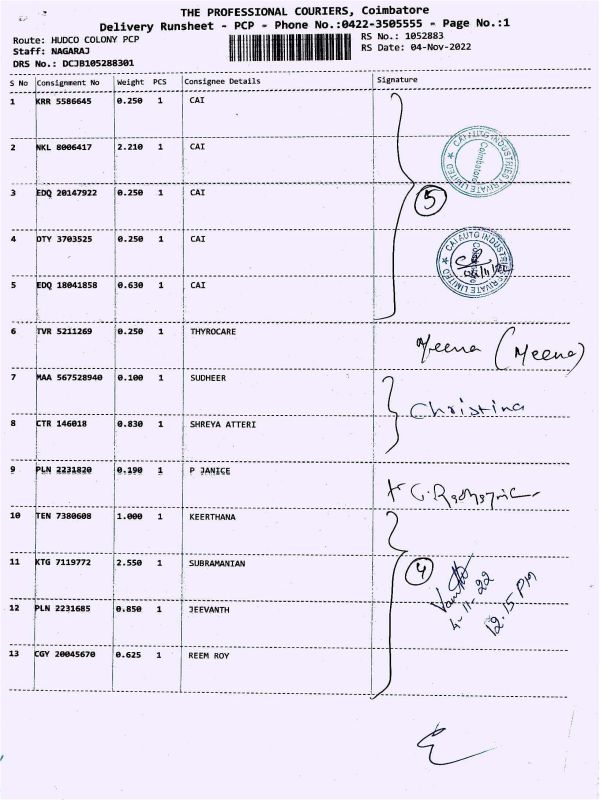 THE PROFESSIONAL COURIERS, Coimbatore
Delivery Runsheet - PCP - Phone No.:0422-3505555 - Page No.:1
Route: HUDCO COLONY PCP
Staff: NAGARAJ
DRS No.: DCJB105288301
RS No.: 1052883
RS Date: 04-Nov-2022
S No Consignment No Weight PCS Consignee Details Signature
1 KRR 5586645 0.250 1 CAI
2 NKL 8006417 2.210 1 CAI
CAI AUTO INDUSTRIES PRIVATE LIMITED ★ Coimbatore
3 EDQ 20147922 0.250 1 CAI
5
4 OTY 3703525 0.250 1 CAI
CAI AUTO INDUSTRIES PRIVATE LIMITED ★
5 EDQ 18041858 0.630 1 CAI
6 TVR 5211269 0.250 1 THYROCARE
Meena (Meena)
7 MAA 567528940 0.100 1 SUDHEER
Christina
8 CTR 146018 0.830 1 SHREYA ATTERI
9 PLN 2231820 0.190 1 P JANICE
10 TEN 7380608 1.000 1 KEERTHANA
11 KTG 7119772 2.550 1 SUBRAMANIAN
4
4-11-22
12.15 PM
12 PLN 2231685 0.850 1 JEEVANTH
13 CGY 20045670 0.625 1 REEM ROY